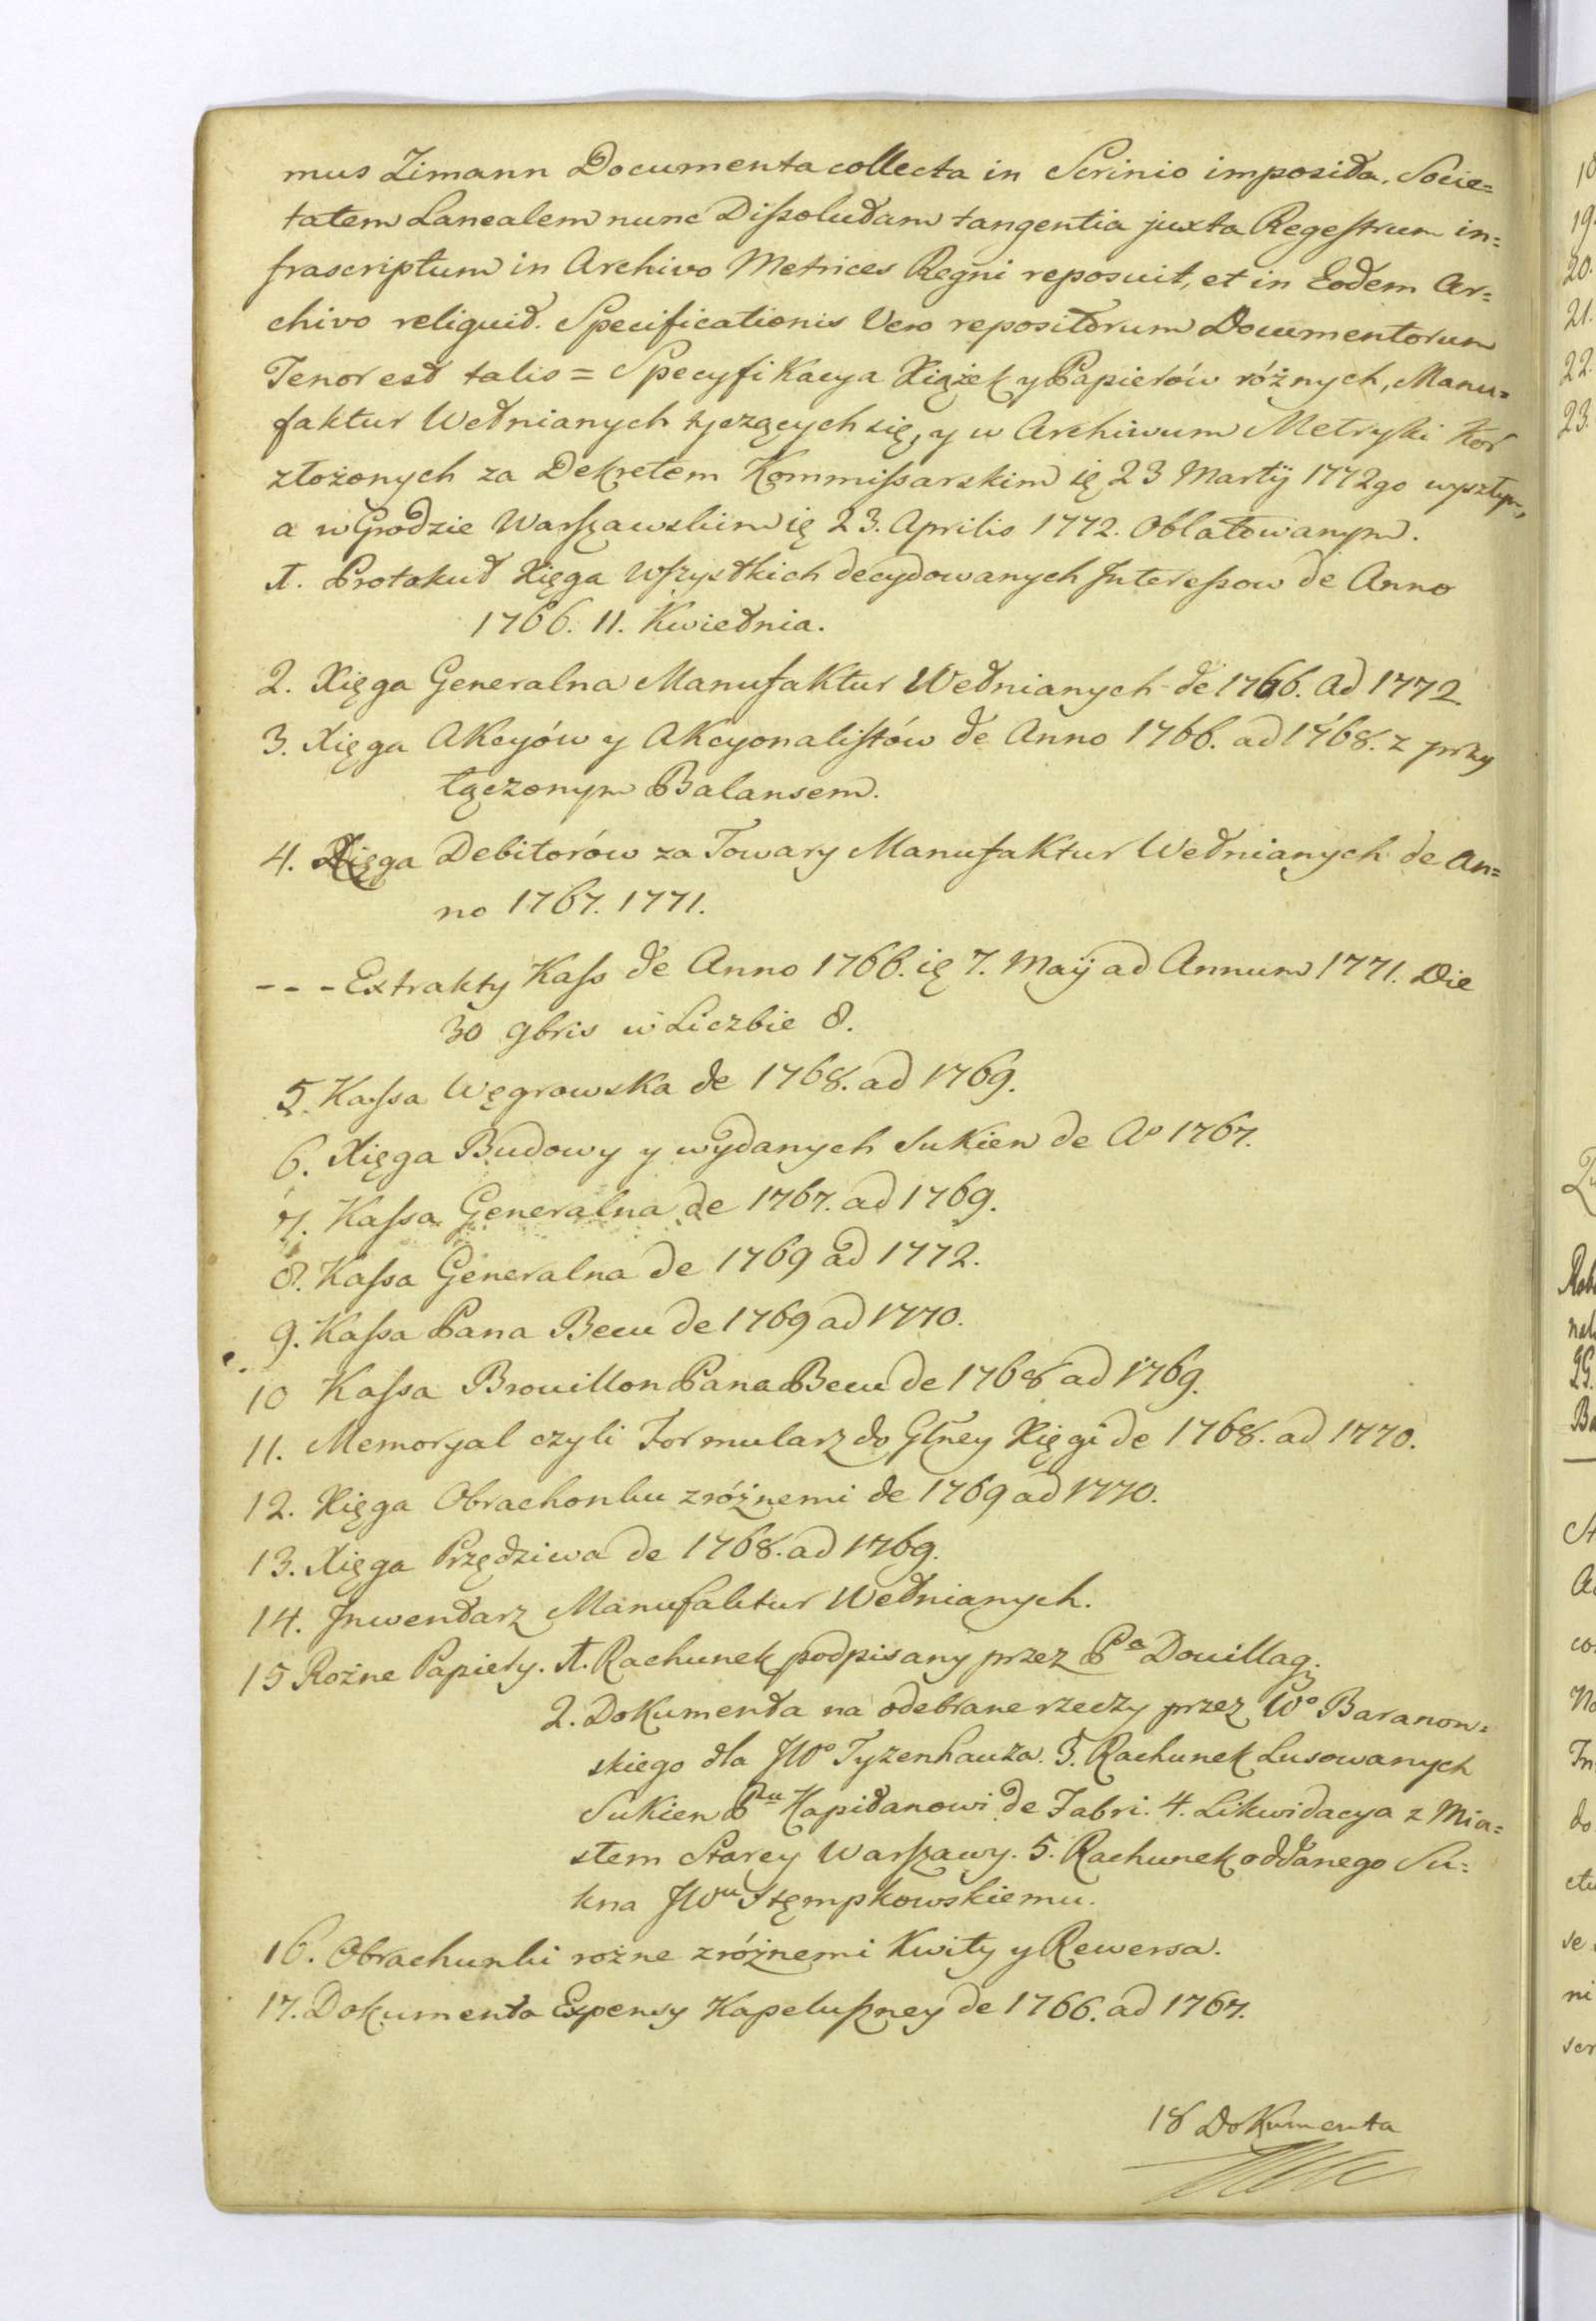 mus Zimann Documenta collecta in Scrinio imposita. Socie=
tatem Lanealem nunc Dissolutam tangentia juxta Regestrum in=
frascriptum in Archivo Metrices Regni reposuit, et in Eodem Ar=
chivo reliquit. Specificationis Vero repositorum Documentorum
Tenor est talis = Specyfikacya Xiążek y Papierów różnych, Manu=
faktur Wełnianych tyczących się, y w Archiwum Metryki Kor
złożonych za Dekretem Kommissarskim ię 23 Martÿ 1772go wyszłym,
a w Grodzie Warszawskim ię 23. Aprilis 1772. Oblatowanym.
1. Protokuł Xięga Wszystkich decydowanych Interessow de Anno
1766. 11. Kwietnia.
2. Xięga Generalna Manufaktur Wełnianych de 1766. ad 1772.
3. Xięga Akcyów y Akcyonalistów de Anno 1766. ad 1768. z przy
łączonym Balansem.
4. Xięga Debitorów za Towary Manufaktur Wełnianych de An=
no 1767. 1771.
- - - Extrakty Kass de Anno 1766. ię 7. Maÿ ad Annum 1771. Die
30 9bris w Liczbie 8.
5. Kassa Węgrowska de 1768. ad 1769.
6. Xięga Budowy y wydanych Sukien de Ao 1767.
7. Kassa Generalna de 1767. ad 1769.
8. Kassa Generalna de 1769 ad 1772.
9. Kassa Pana Becu de 1769 ad 1770.
10 Kassa Brouillon Pana Becu de 1768 ad 1769.
11. Memoryal czyli Formularz do Głney Xięgi de 1768. ad 1770.
12. Xięga Obrachonku z różnemi de 1769 ad 1770.
13. Xięga Przędziwa de 1768. ad 1769.
14. Inwentarz Manufaktur Wełnianych.
15 Rożne Papiery. 1. Rachunek podpisany przez Pa Douillag.
2. Dokumenta na odebrane rzeczy przez Wo Baranow=
skiego dla JWo Tyzenhauza. 3. Rachunek Lusowanych
Sukien Pnu Kapitanowi de Fabri. 4. Likwidacya z Mia=
stem Starey Warszawy. 5. Rachunek oddanego Su=
kna JWu Stępkowskiemu.
16. Obrachunki rożne z różnemi Kwity y Rewersa.
17. Dokumenta Expensy Kapeluszney de 1766. ad 1767.
18 Dokumenta